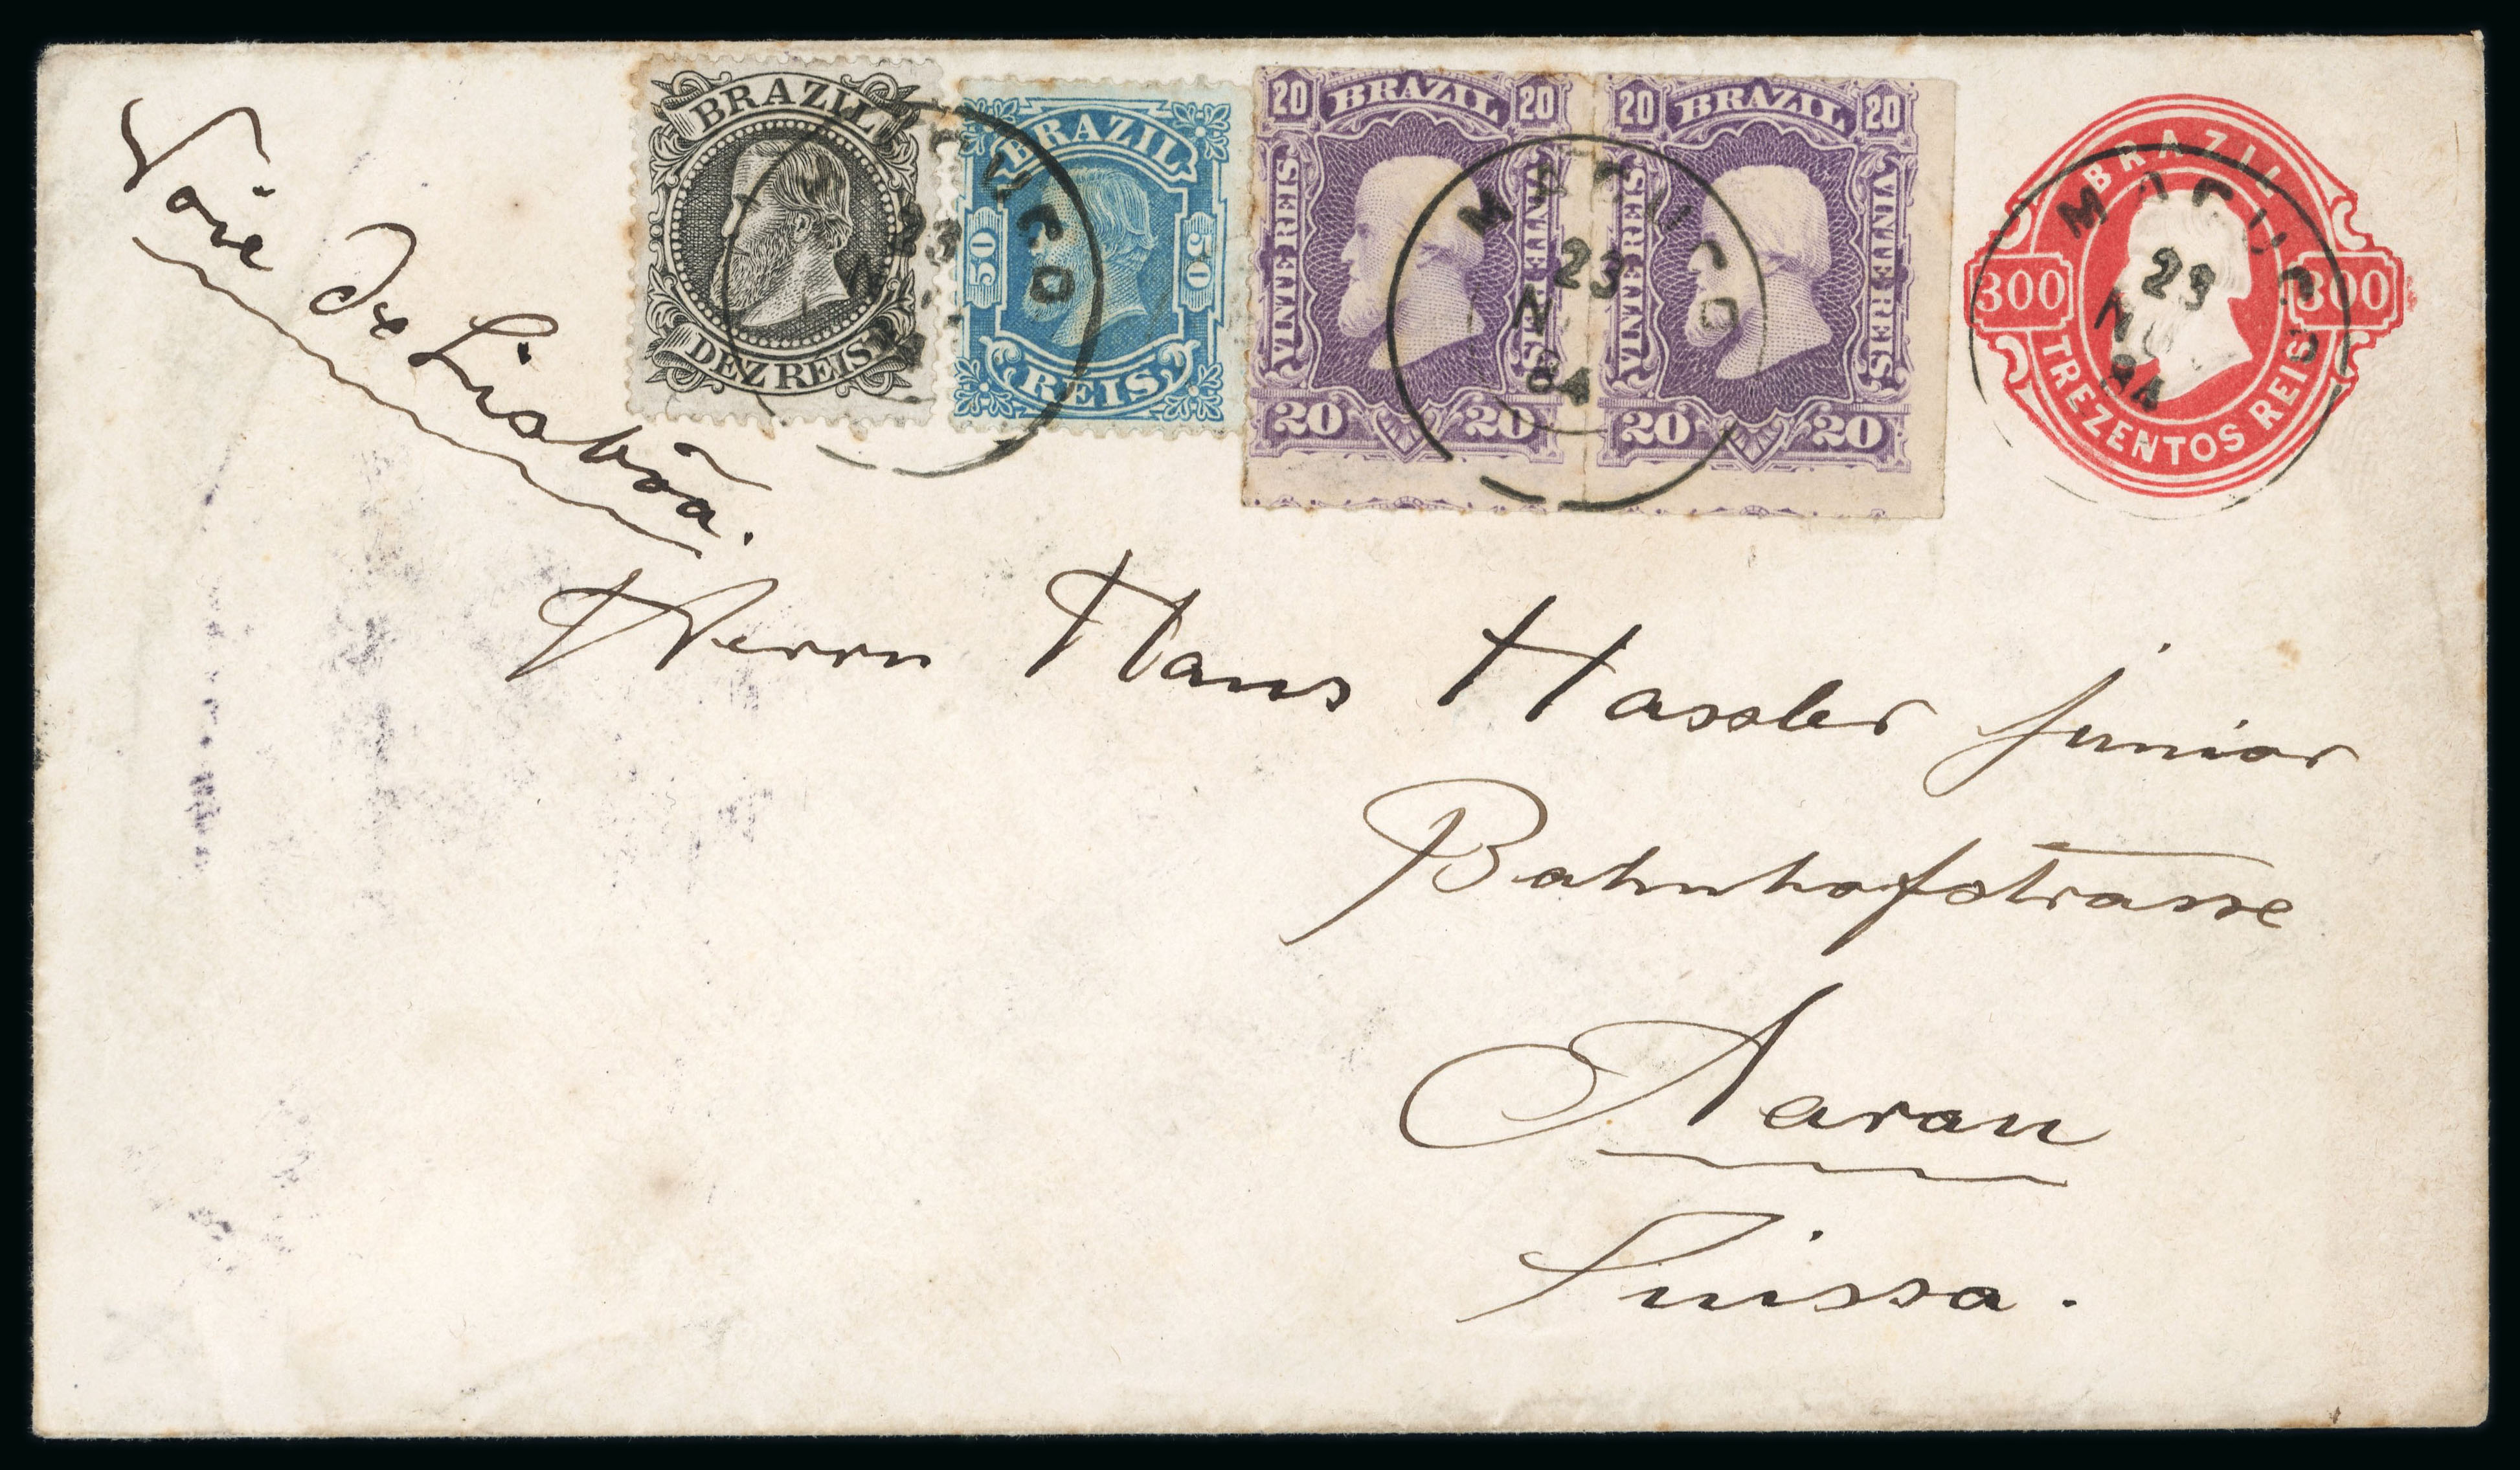 Voie de Lisbôa.
BRAZIL
DEZ REIS
BRAZIL
50 50
REIS
20 BRAZIL 20
VINTE REIS VINTE REIS
20 20
20 BRAZIL 20
VINTE REIS VINTE REIS
20 20
BRAZIL
300 300
TREZENTOS REIS
23
MACUCO
23
N
84
MACUCO
23
84
Herrn Hans Hassler junior
Bahnhofstrasse
Aarau
Suissa.